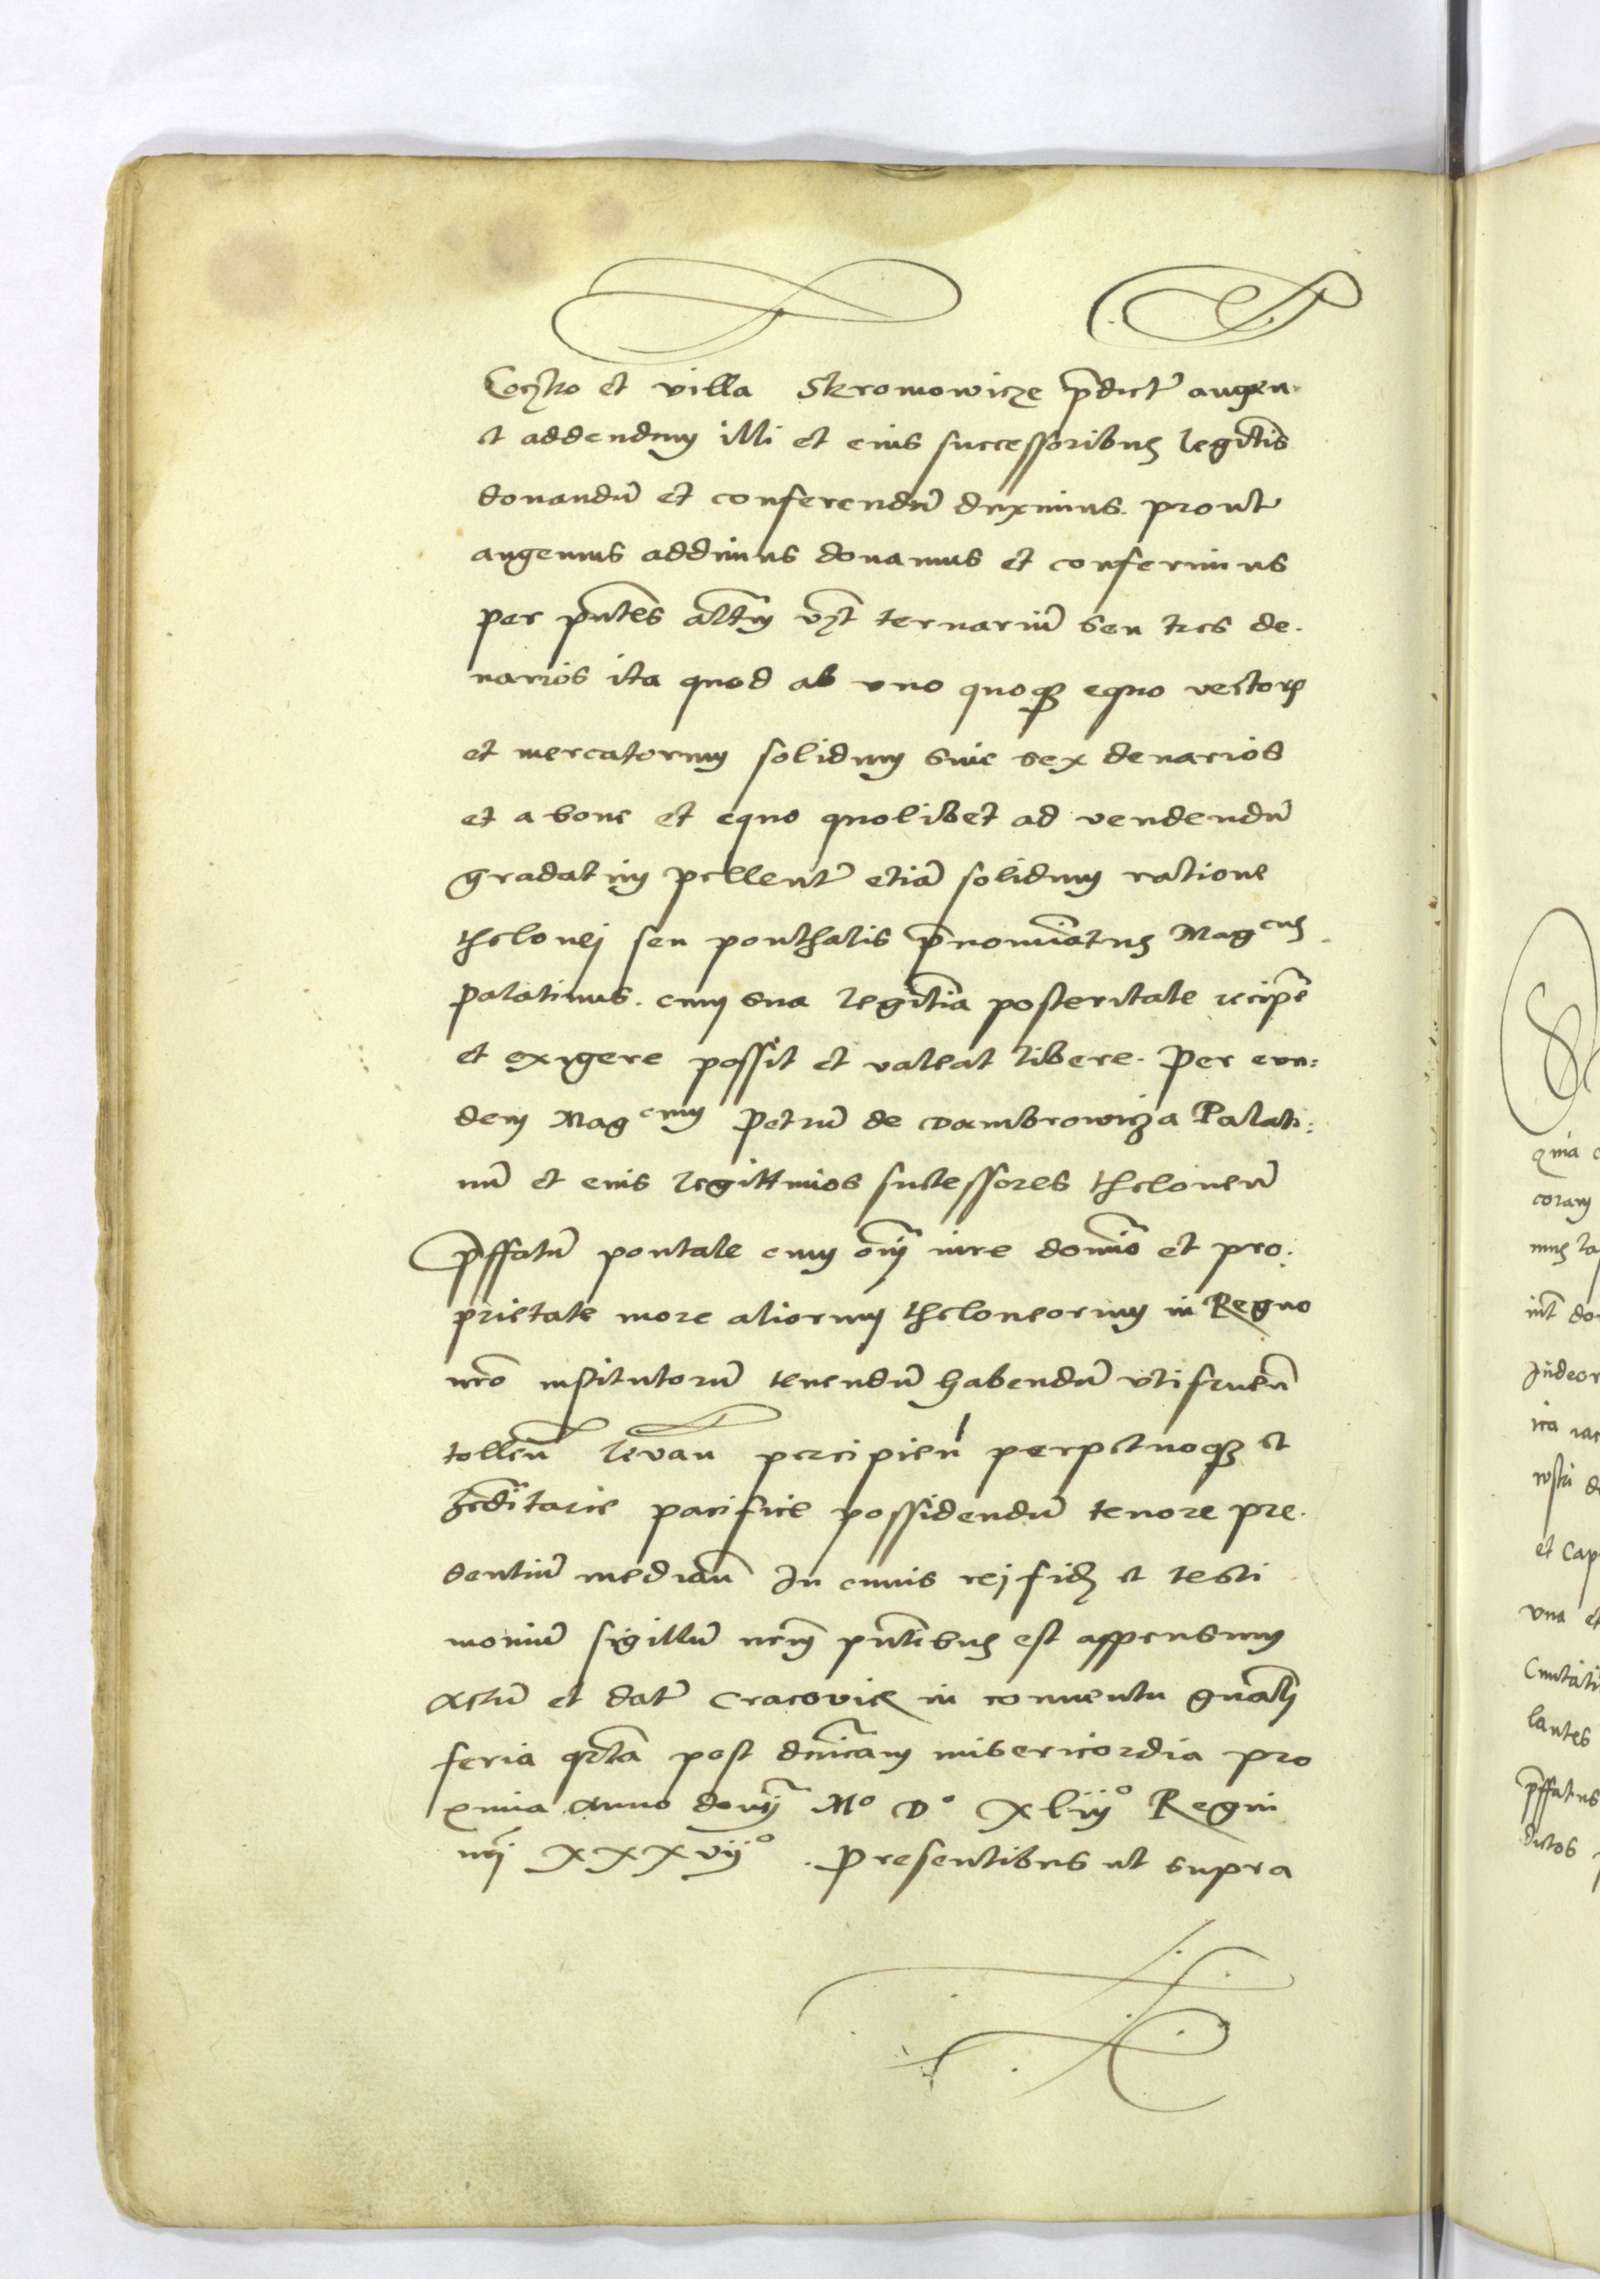 Coczko et villa Skromowicze p̄dict̄ augen.
et addendum illi et eius successoribus legit̄is
donandū et conferendū duximus. prout
augemus addimus donamus et conferimus
per pn̄tes alt̄m vz̄t ternariū seu tres de.
narios ita quod ab uno quoqꝫ equo vectoꝝ
et mercatorum solidum sive sex denarios
et a bove et equo quolibet ad vendendū
gradatim pellent̄ etiā solidum ratione
thelonej seu ponthalis p̄nomīatus Mag^cus
Palatinus. cum sua legit̄ia posteritate recip̄e
et exigere possit et valeat libere. Per eun:
dem Mag^cum Petrū de Dambrowicza Palati:
nū et eius legittimos successores theloneū
p̄ffatū pontale cum om̄j iure domīo et pro.
prietate more aliorum theloneorum in Regno
nr̄o institutorū tenendū habendū utifruen̄
tollen̄ levan̄ percipien̄ perpetuoqꝫ et
hered̄itarie pacifice possidendū tenore pre.
sentiū median̄ In cuius rej fidē et testi
moniū sigillū nr̄m pn̄tibus est appensum
Actū et dat̄ Cracovie in conventu gn̄alj
feria qr̄ta post dn̄icam misericordia pro
xima Anno domj̄ M° D° xliij° Regni
nr̄j xxxvij° . Presentibus ut supra
qnia
coram
Judeor
et Cap
una et
lantes
p̄ffatus
dictos